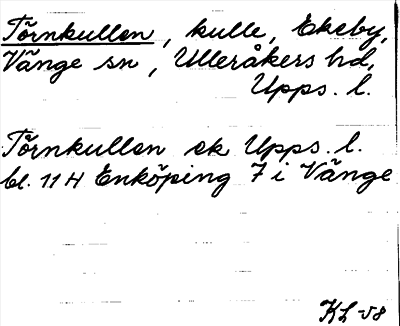 Törnkullen, kulle, Ekeby,
Vänge sn, Ulleråkers hd,
Upps. l.
Törnkullen ek Upps. l.
bl. 11 H Enköping 7 i Vänge
KL -58